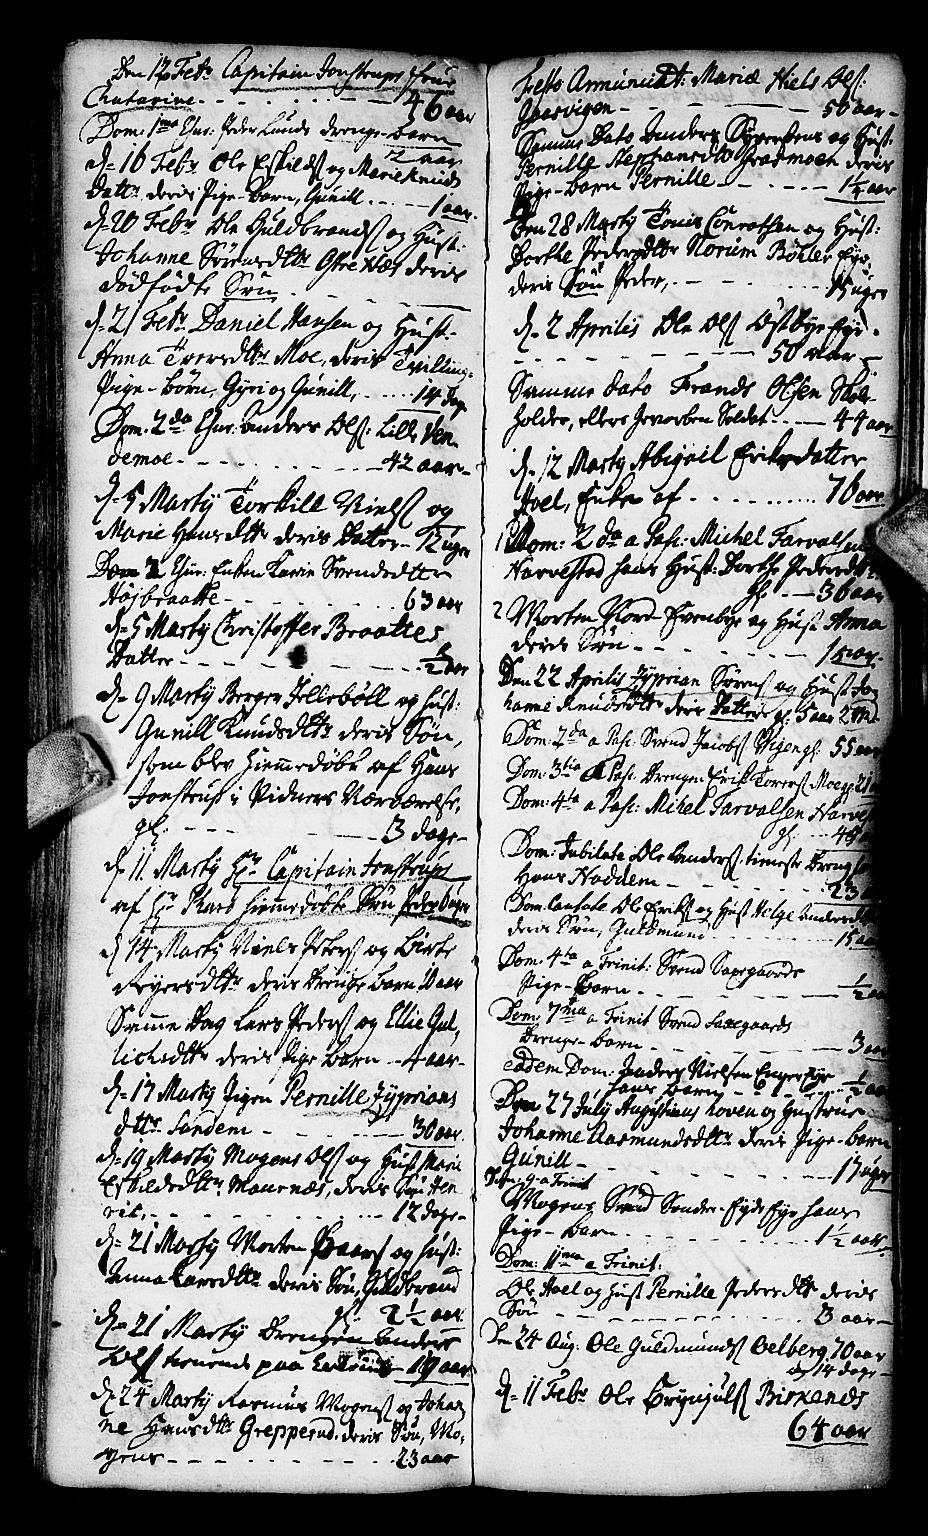 Den 12 Febr. Capitain Jonstrups Frue
Catarine - - - 46 aar
Dom: 1ma Qvr: Peder Lunds drenge-barn
12 aar
d= 16 Febr Ole Eskilds og Marie Knuds
datt: deris Pige-barn, Gunill - - - 1 aar.
d= 20 Febr Ole Guldbrands og Hust:
Johanne Sörensdttr deris
dödfödte Sön - - -
d= 21 Febr Daniel Hansen og Hust:
Anna Iversdttr Moe, deris Tvilling-
Pige-börn, Gyri og Gunill, - - - 14 dage
Dom: 2da Qvr: Anders Ols: Lille Ven
demoe - - - 42 aar -
d= 5 Marty Torkill Niels og
Marie Hansdttr deris Datter - 12 uger
Dom 2 Qvr: Enken Karin Svendsdtter
Höjbraatte - - - 63 aar
d= 5 Marty Christoffer Braattes
Datter - - - 1/2 aar
d= 9 Marty Börger Jelleböll og Hust:
Gunill Knudsdttr deris Sön,
som blev hiemmedöbt af Hans
Jonstrup i Vidners Nærværelse,
gl. - - - 3 dage -
d= 11. Marty Hr Capitain Jonstrups
af Hr hiemmedöbte Sön Peder
d= 14 Marty Niels Peders og Birte
Reyersdttr deris Drenge barn 10 aar
Samme Dag Lars Peders og Ellie Gul,
lichsdttr deris Pige barn - - 4 aar -
d= 17 Marty Pigen Pernille Zyprians
dttr Sandem - - - 30 aar.
d= 19 Marty Mogens Ols og Hust Marie
Eskildsdttr Mournæs, deris Sön Hen
rik, - - - 12 dage -
d= 21 Marty Morten Paars og Hust:
Anna Larsdttr deris Sön, Guldbrand
gl. 2 1/2 aar
d= 21 Marty Drengen Anders
Ols tienende paa - 19 aar
d= 24 Marty Rasmus Mogens og Johan
ne Hansdttr Grepperud. deris Sön, Mo,
gens - - - 23 aar
Festo Annuncidt: Mariæ Niels Ols:
Gaarvigen - - - 50 aar -
Samme Dato Anders og Hust:
Pernille Stephansdttr Grasmoen deris
Pige-barn Pernille - - - 1 1/4 aar
Den 28 Marty Tönis Conratsen og Hust:
Dorthe Pedersdttr Norum Böhler Eye,
deris Sön Peder, - - - 15 uger
d= 2 Aprilis Ole Ols Östbye Eye -
- - - 50 aar -
Samme dato Frands Olsen Skee
holder, ellers Gevorben Soldat - - - 44 aar
d= 12 Marty Abigail Eriksdatter
Hoel, Enke af - - - 76 aar
1 Dom: 2da a Pasc: Michel Tarvalsen
Narvestad hans Hust: Dorthe Pedersdttr
gl. - - - 36 aar
2 Morten Nord- Evenbye og Hust Anna
deris Sön - - - 15 aar.
Den 22 Aprilis Zyprian Sörens og Hust Jo
hanne Knudsdttr deris Datter gl. 5 aar 2 Md
Dom: 2da a Pasc. Svend Jacobs Pige gl: 55 aar
Dom: 3tia a Pasc. Drengen Erik Torers Moe gl: 21
Dom: 4ta a Pasc. Mihel Tarvalsen Narves
gl: - - -
Dom: Jubilate Ole Anders: tieneste Dreng
Hans Noddem - - - 23
Dom: Cantate Ole Eriks og Hust Helge Andersdttr
deris Sön, Guldmund - - - 15 aar
Dom: 4ta a Trinit: Svend Saxegaards
Pige-barn - - - 1/2 aar
Dom: 7ma a Trinit Svend Saxegaards
Drenge-barn - - - 3 aar
eadem Dom: Anders Nielsen Enger Eye
hans barn - - - 1/2 aar
Den 27 July Augustinus Hoven og Hustrue
Johanne Rasmundsdttr deris Pige-barn
Gunill - - - 17 uger
Dom: 9 a Trinit
Mogens Sönder- Eye hans
Pige-barn - - - 1 1/2 aar
Dom: 11ma a Trinit:
Ole Hoel og Hust Pernille Pedersdttr deris
Sön - - - 3 aar -
Den 24 Aug: Ole Guldmunds Oelberg 70 aar
og 14 dage -
d= 11 Febr Ole Brynjuls Birkenæs
64 aar